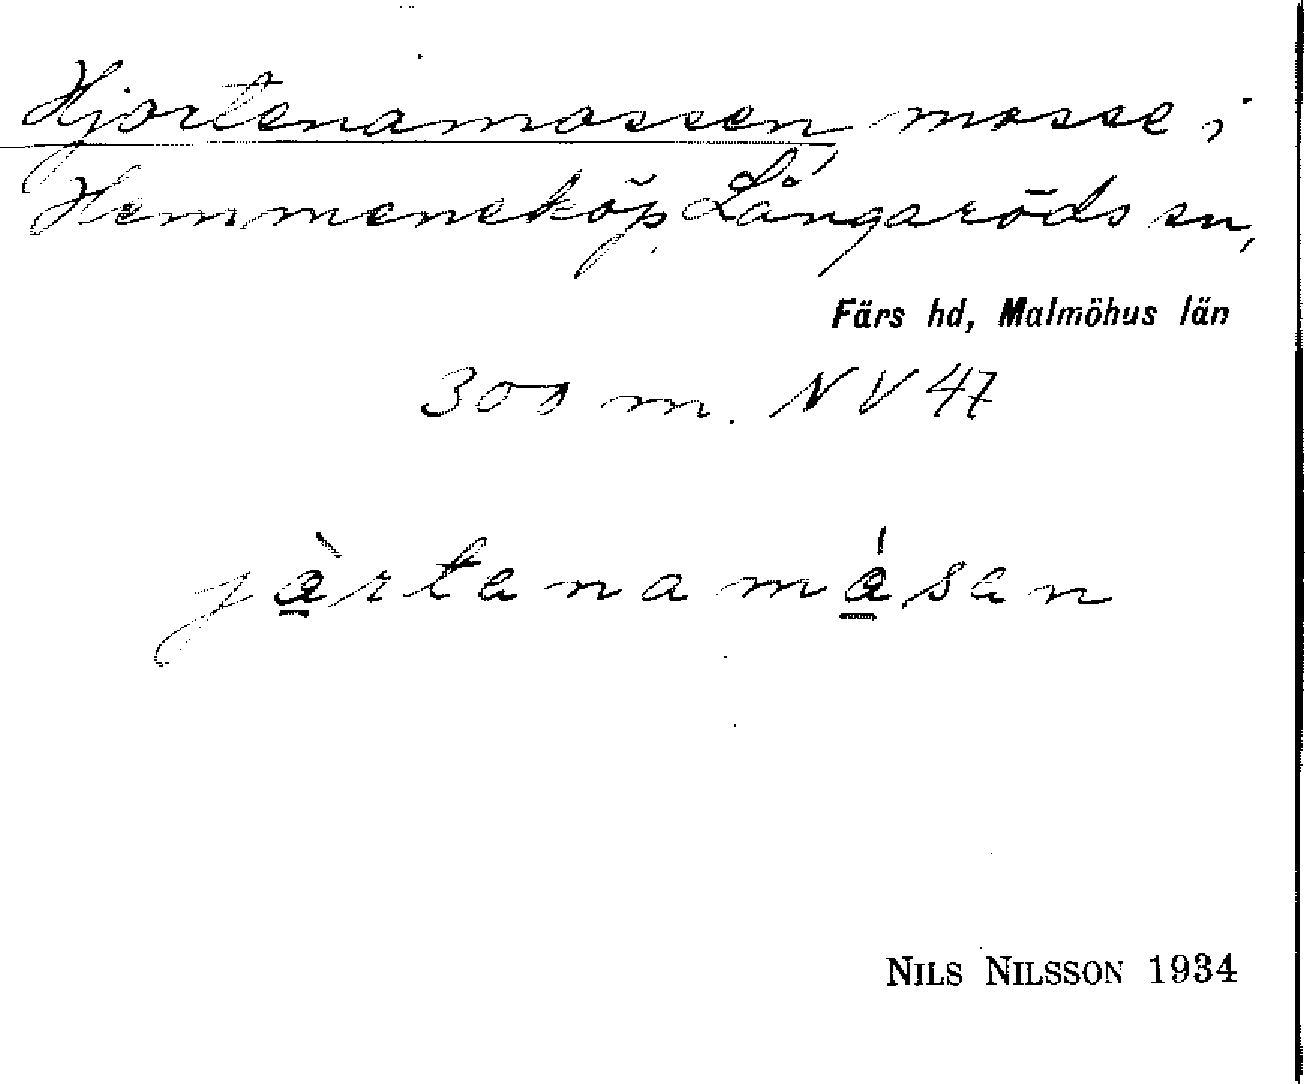 Hjortenamossen mosse i
Hemmeneköp, Långaröds sn,
Färs hd, Malmöhus län
300 m. NV 47
jàrtenamásen
NILS NILSSON 1934